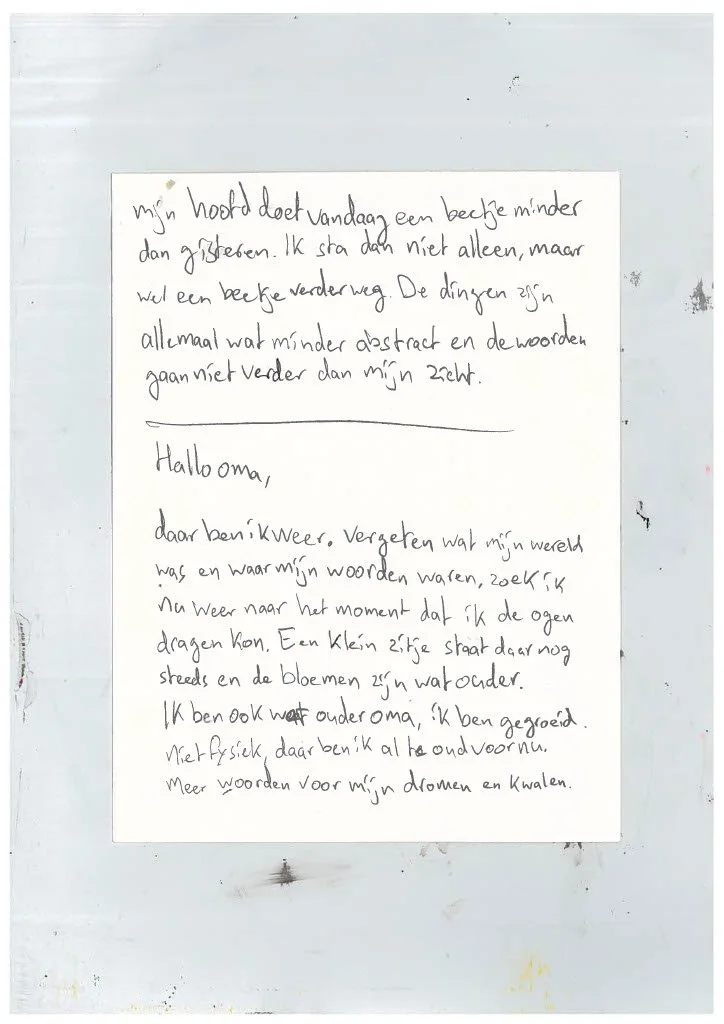 mijn hoofd doet vandaag een beetje minder
dan gisteren. Ik sta dan niet alleen, maar
wel een beetje verder weg. De dingen zijn
allemaal wat minder abstract en de woorden
gaan niet verder dan mijn zicht.
Hallo oma,
daar ben ik weer. Vergeten wat mijn wereld
was en waar mijn woorden waren, zoek ik
nu weer naar het moment dat ik de ogen
dragen kon. Een klein zitje staat daar nog
steeds en de bloemen zijn wat ouder.
Ik ben ook wat ouder oma, ik ben gegroeid.
Niet fysiek, daar ben ik al te oud voor nu.
Meer woorden voor mijn dromen en kwalen.